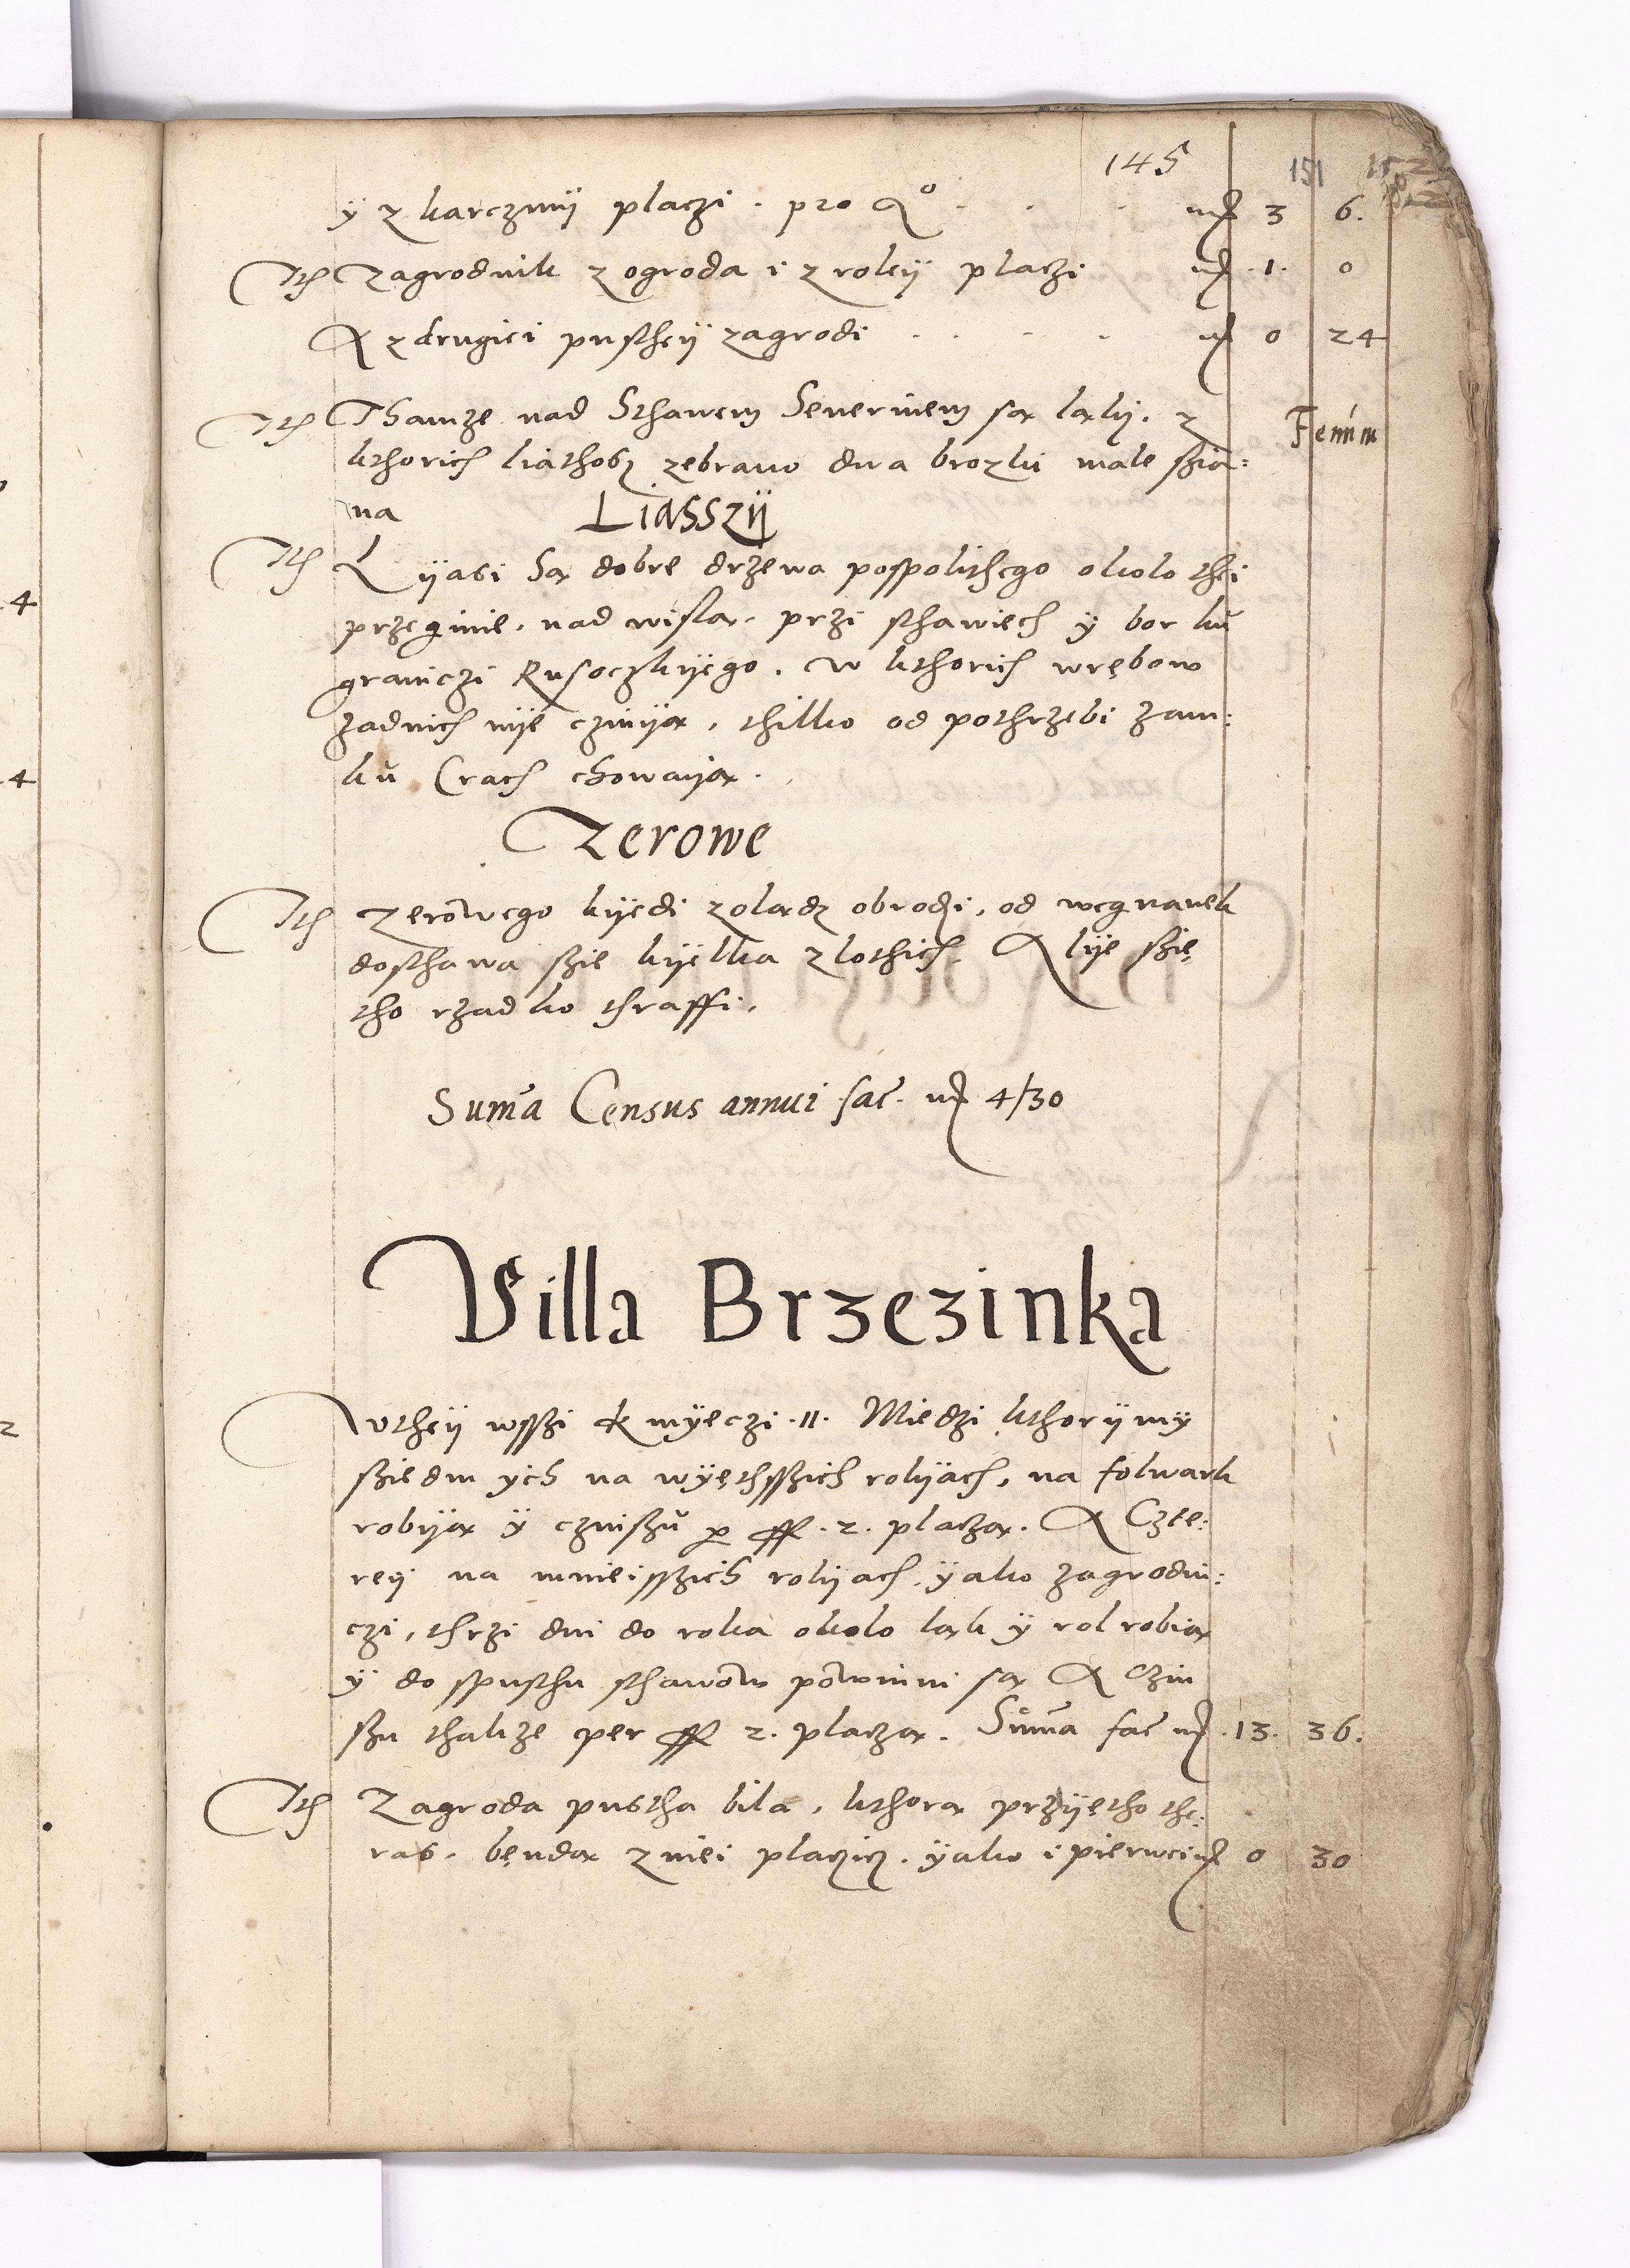 145 151 152
ÿ z karczmÿ placzi . pro Qo . . . mꝛ 3 6.
Ith Zagrodnik z ogroda i z rolÿ placzi mꝛ .1. 0
A z drugiei pusthÿ zagrodi . . . . mꝛ 0 24
Ith Thamze nad Sthawem Severinem są ląkÿ. z
kthorich liathosz zebrano dwa brozki male szia:
na
Fenum
Liasszÿ
Ith Lÿasi Są dobre drzewa pospolithego okolo thei
przeginie, nad wislą, przi sthawiech ÿ bor ku
graniczi Rusoczkÿego. W kthorich wrębow
zadnich nÿe czinÿą, thilko od pothrzebi zam:
ku Crach chowaÿą.
Zerowe
Ith Zerowego kÿedi zolądz obrodzi, od wegnanek
dosthawa szie kÿelka zlothich. A lÿe szię
tho rzadko thraffi,
Suma Census annui fac. mꝛ 4/30
Villa Brzezinka
W theÿ wsszi Kmÿeczi .11. Miedzi kthorÿmÿ
sziedm ych na wÿęthsszich rolÿach, na folwark
robÿą ÿ czinszu per ff .2. placzą. A Czte:
reÿ na mnieisszich rolÿach, ÿako zagrodni:
czi, thrzi dni do roka okolo ląk ÿ rol robią
ÿ do spusthu sthawow powinni są A Czin
szu thakze per ff 2. placzą. Suma fac mꝛ .13. 36.
Ith Zagroda pustha bila, kthorą przÿętho the:
ras. będą z niei placzicz. ÿako i pierwei mꝛ 0 30
4
4
2